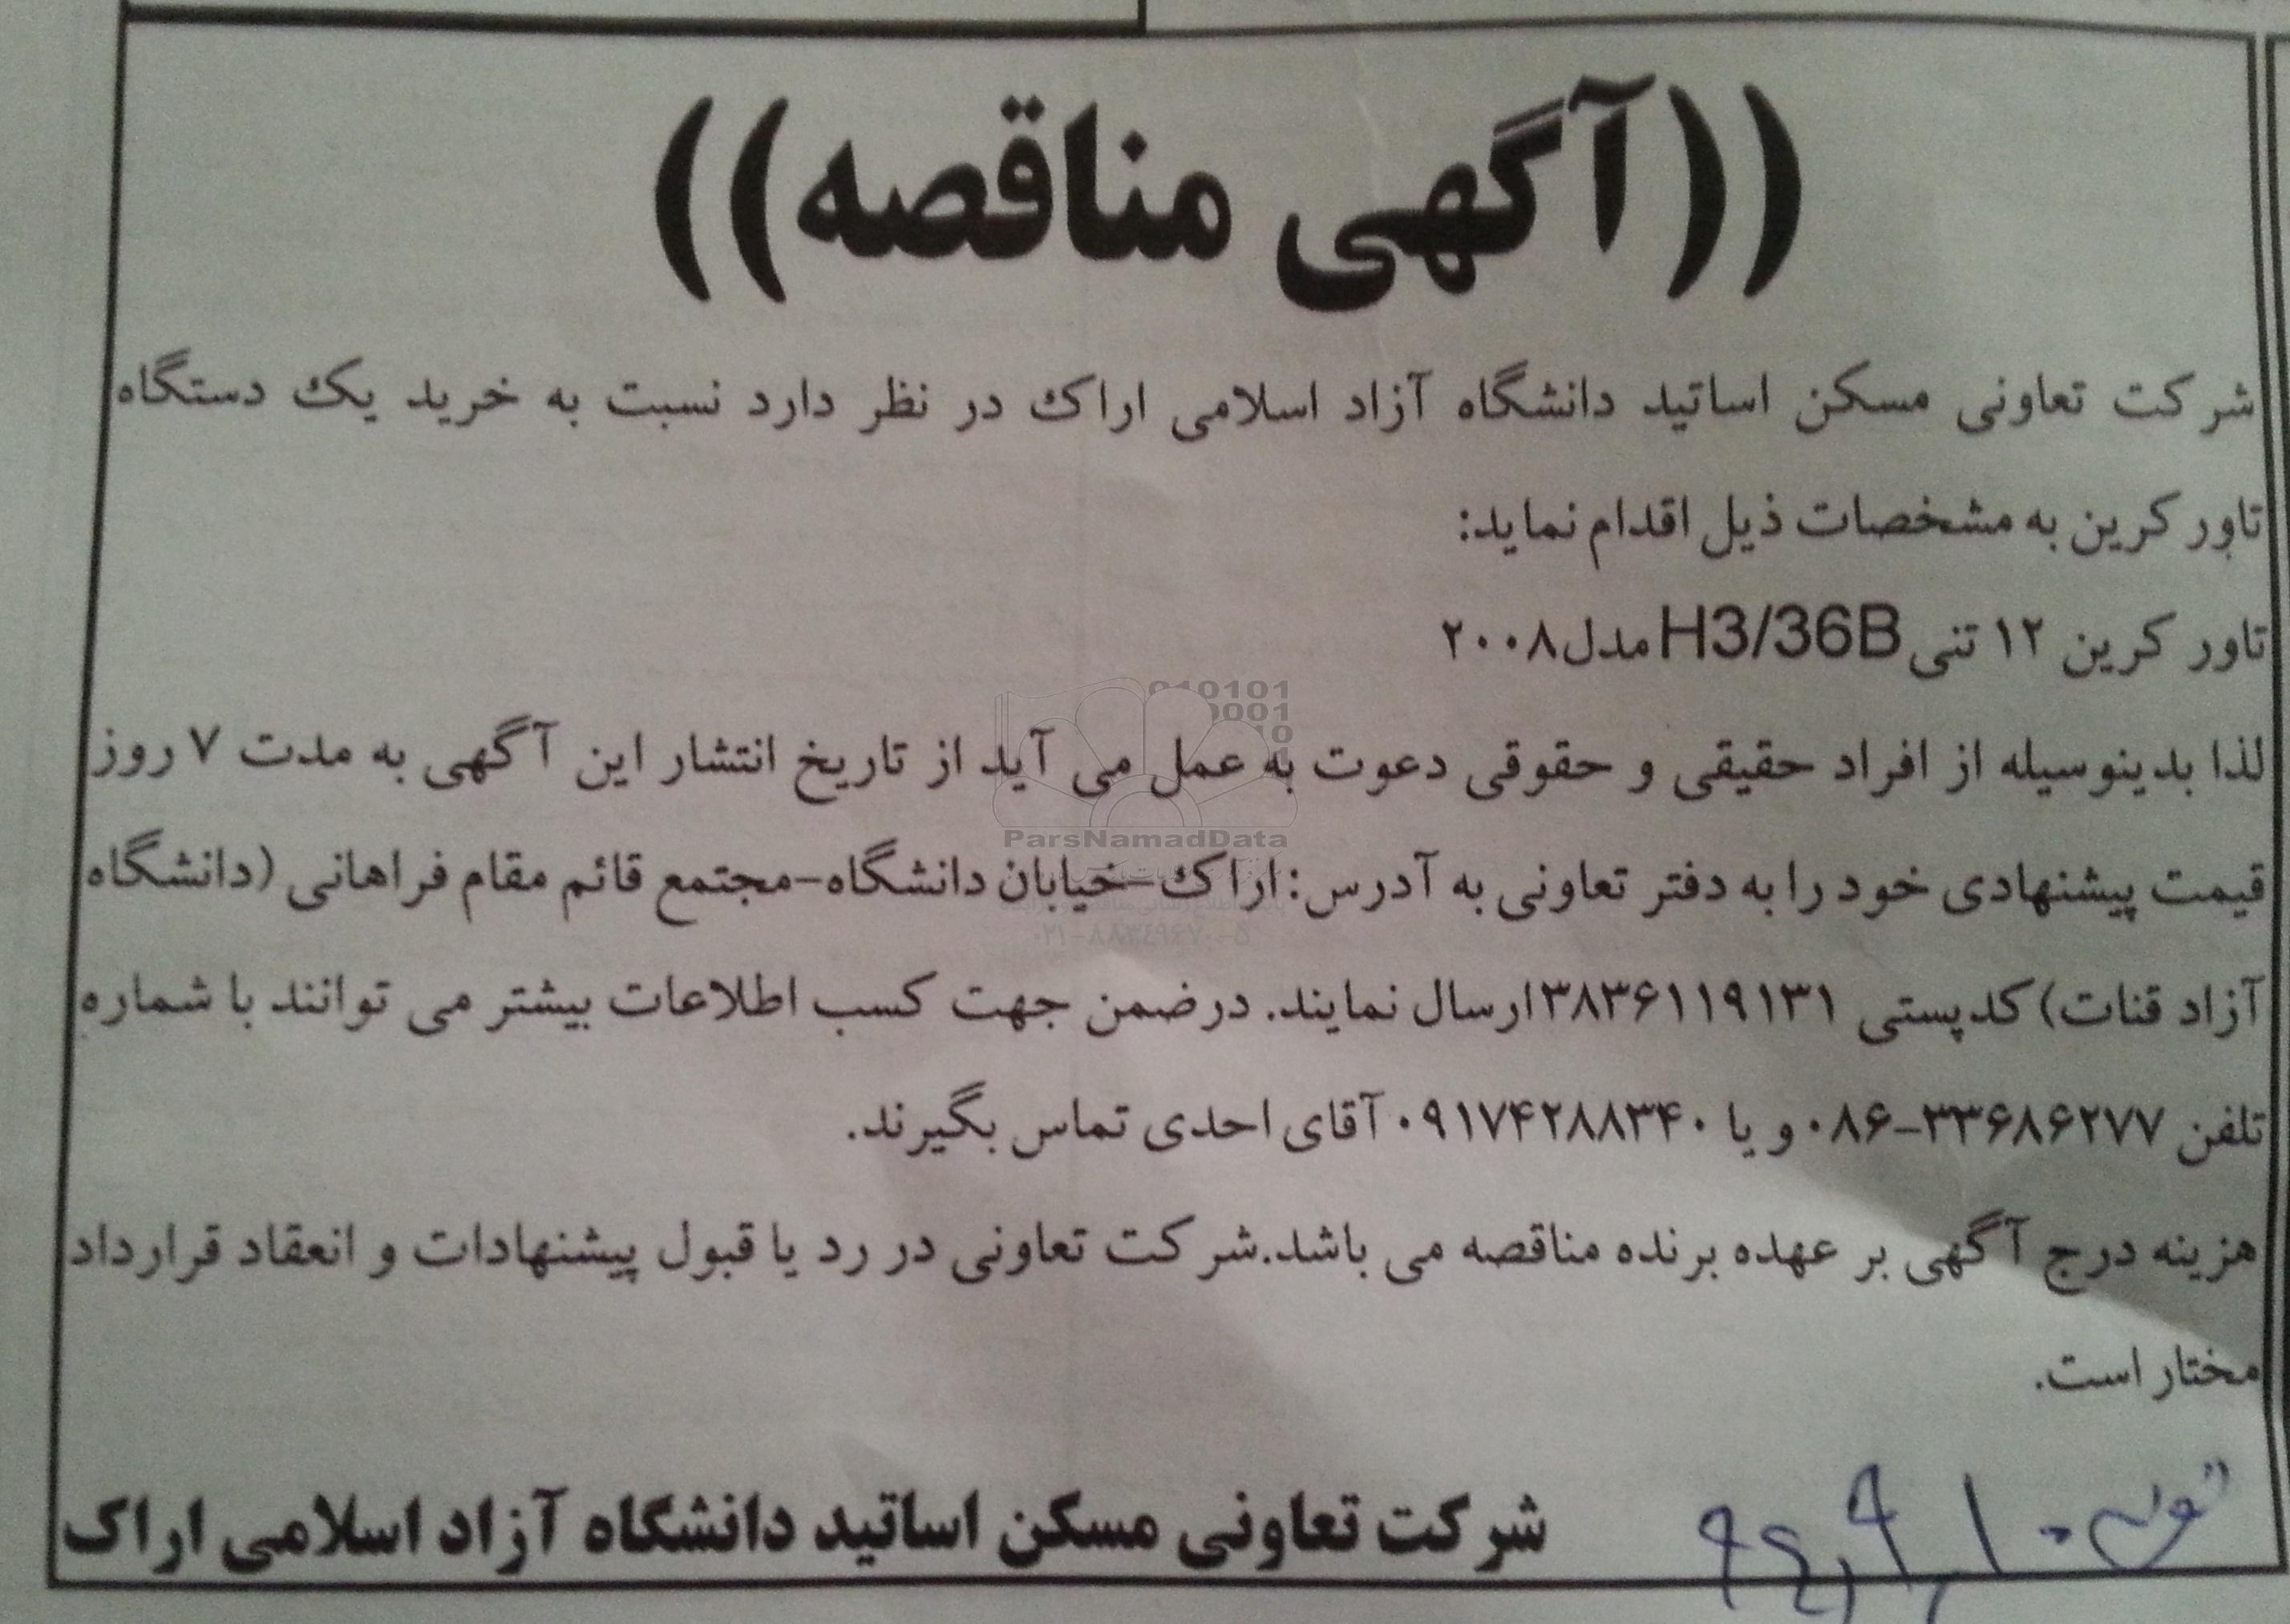 ((آگهی مناقصه))
شرکت تعاونی مسکن اساتید دانشگاه آزاد اسلامی اراک در نظر دارد نسبت به خرید یک دستگاه
تاور کرین به مشخصات ذیل اقدام نماید:
تاور کرین ۱۲ تنی H3/36B مدل ۲۰۰۸
لذا بدینوسیله از افراد حقیقی و حقوقی دعوت به عمل می آید از تاریخ انتشار این آگهی به مدت ۷ روز
قیمت پیشنهادی خود را به دفتر تعاونی به آدرس: اراک-خیابان دانشگاه-مجتمع قائم مقام فراهانی (دانشگاه
آزاد قنات) کدپستی ۳۸۳۶۱۱۹۱۳۱ ارسال نمایند. درضمن جهت کسب اطلاعات بیشتر می توانند با شماره
تلفن ۳۳۶۸۶۲۷۷-۰۸۶ و یا ۰۹۱۷۴۲۸۸۳۴۰ آقای احدی تماس بگیرند.
هزینه درج آگهی بر عهده برنده مناقصه می باشد.شرکت تعاونی در رد یا قبول پیشنهادات و انعقاد قرارداد
مختار است.
شرکت تعاونی مسکن اساتید دانشگاه آزاد اسلامی اراک
010101
0001
10
ParsNamadData
۰۲۱-۸۸۳۴۹۶۷۰-۵